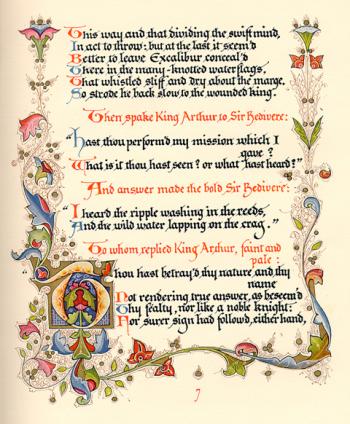 This way and that dividing the swift mind,
In act to throw: but at the last it seem'd
Better to leave Excalibur conceal'd
There in the many-knotted waterflags,
That whistled stiff and dry about the marge.
So strode he back slow to the wounded king.
Then spake King Arthur to Sir Bedivere:
"Hast thou perform'd my mission which I
gave?
What is it thou hast seen? or what hast heard?"
And answer made the bold Sir Bedivere:
"I heard the ripple washing in the reeds,
And the wild water lapping on the crag."
To whom replied King Arthur, faint and
pale:
Thou hast betray'd thy nature and thy
name
Not rendering true answer, as beseem'd
Thy fealty, nor like a noble knight:
For surer sign had follow'd, either hand,
7